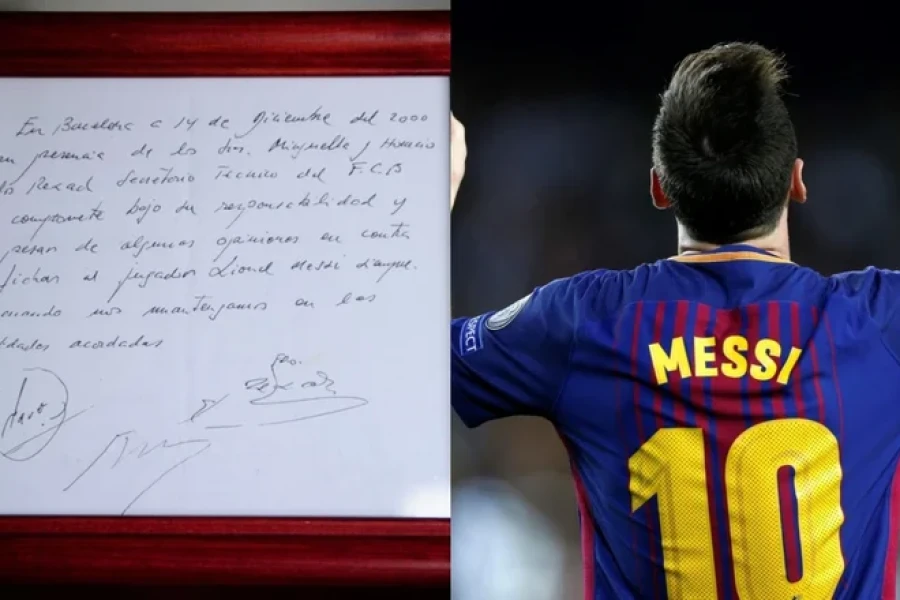 En Barcelona a 14 de Diciembre del 2000
en presencia de los Sres. Minguella y Horacio
Rexach Secretario Técnico del F.C.B
compromete bajo su responsabilidad y
pesar de algunas opiniones en contra
fichar al jugador Lionel Messi siempre
cuando nos mantengamos en las
acordadas
RESPECT
MESSI
10